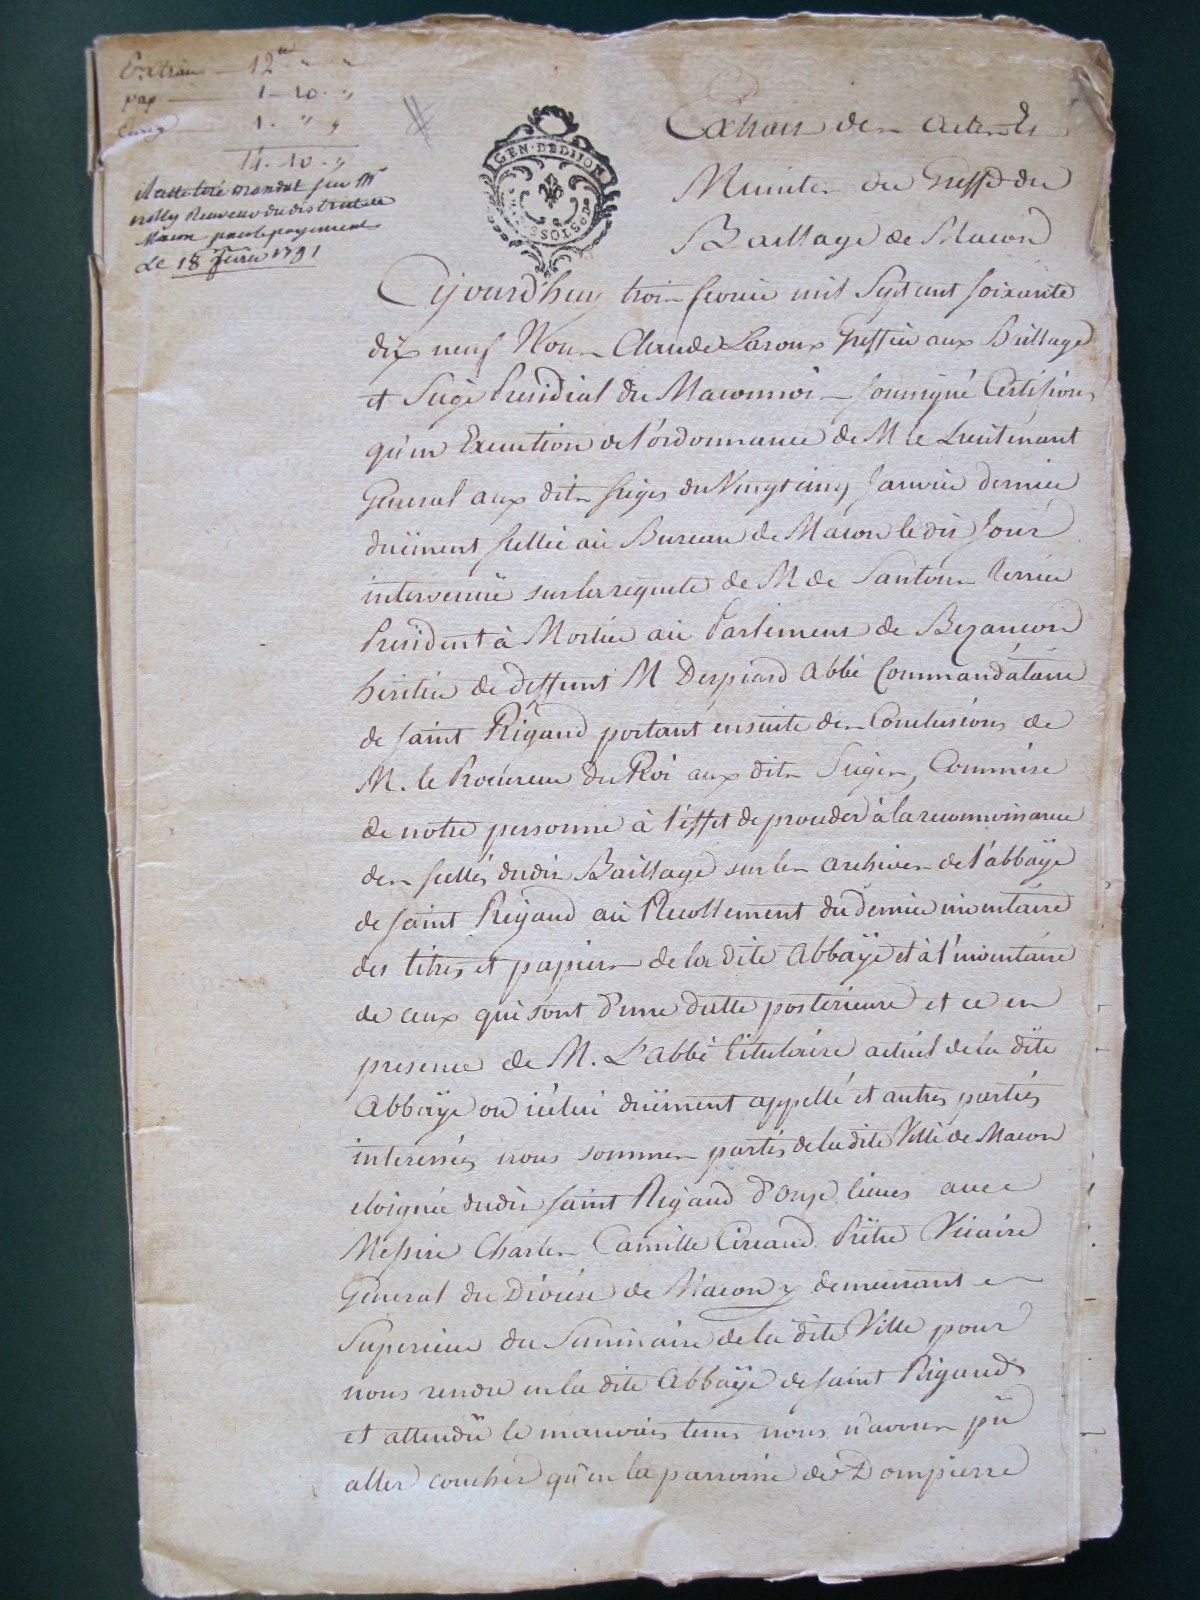 Extrait 12 " "
pap 1 - 10 - "
1 - " "
14 - 10 - "
il a été tiré mandat sur Mr
receveur du district de
Macon pour le payement
Le 18 fevrier 1791
GEN · DE DIJON
Extrait des actes et
Minutes du Greffe du
Baillage de Macon
Cejourd'huy trois fevrier mil Sept cent soixante
dix neuf Nous Claude Laroux Greffier aux Baillage
et Siege Presidial du Maconnois soussigné Certifions
qu'en Execution de l'ordonnance de M le Lieutenant
General aux dits sieges du Vingt cinq Janvier dernier
duëment scellée au Bureau de Macon le dit Jour
intervenüe sur la requete de M de Santour Terrier
President à Mortier au Parlement de Bezancon
heritier de deffunt M Despiard Abbé Commandataire
de saint Rigaud portant ensuite des Conclusions de
M. le Procureur du Roi aux dits Sieges, Commise
de notre personne à l'effet de proceder à la reconnoissance
des scellés dudit Baillage sur les archives de l'abbaÿe
de saint Rigaud au Recollement du dernier inventaire
des titres et papiers de la dite Abbaÿe et à l'inventaire
de ceux qui sont d'une datte posterieure et ce en
presence de M. L'abbé titulaire actuel de la dite
Abbaÿe ou icelui duëment appellé et autres parties
interessées nous sommes partis de la dite Ville de Macon
eloignée dudit saint Rigaud d'onze lieues avec
Messire Charles Camille Ciraud Prêtre Vicaire
General du Diocese de Macon y demeurant
Superieur du Seminaire de la dite Ville pour
nous rendre en la dite Abbaÿe de saint Rigaud
et attendû le mauvais tems nous n'avons pû
aller coucher qu'en la parroisse de Dompierre